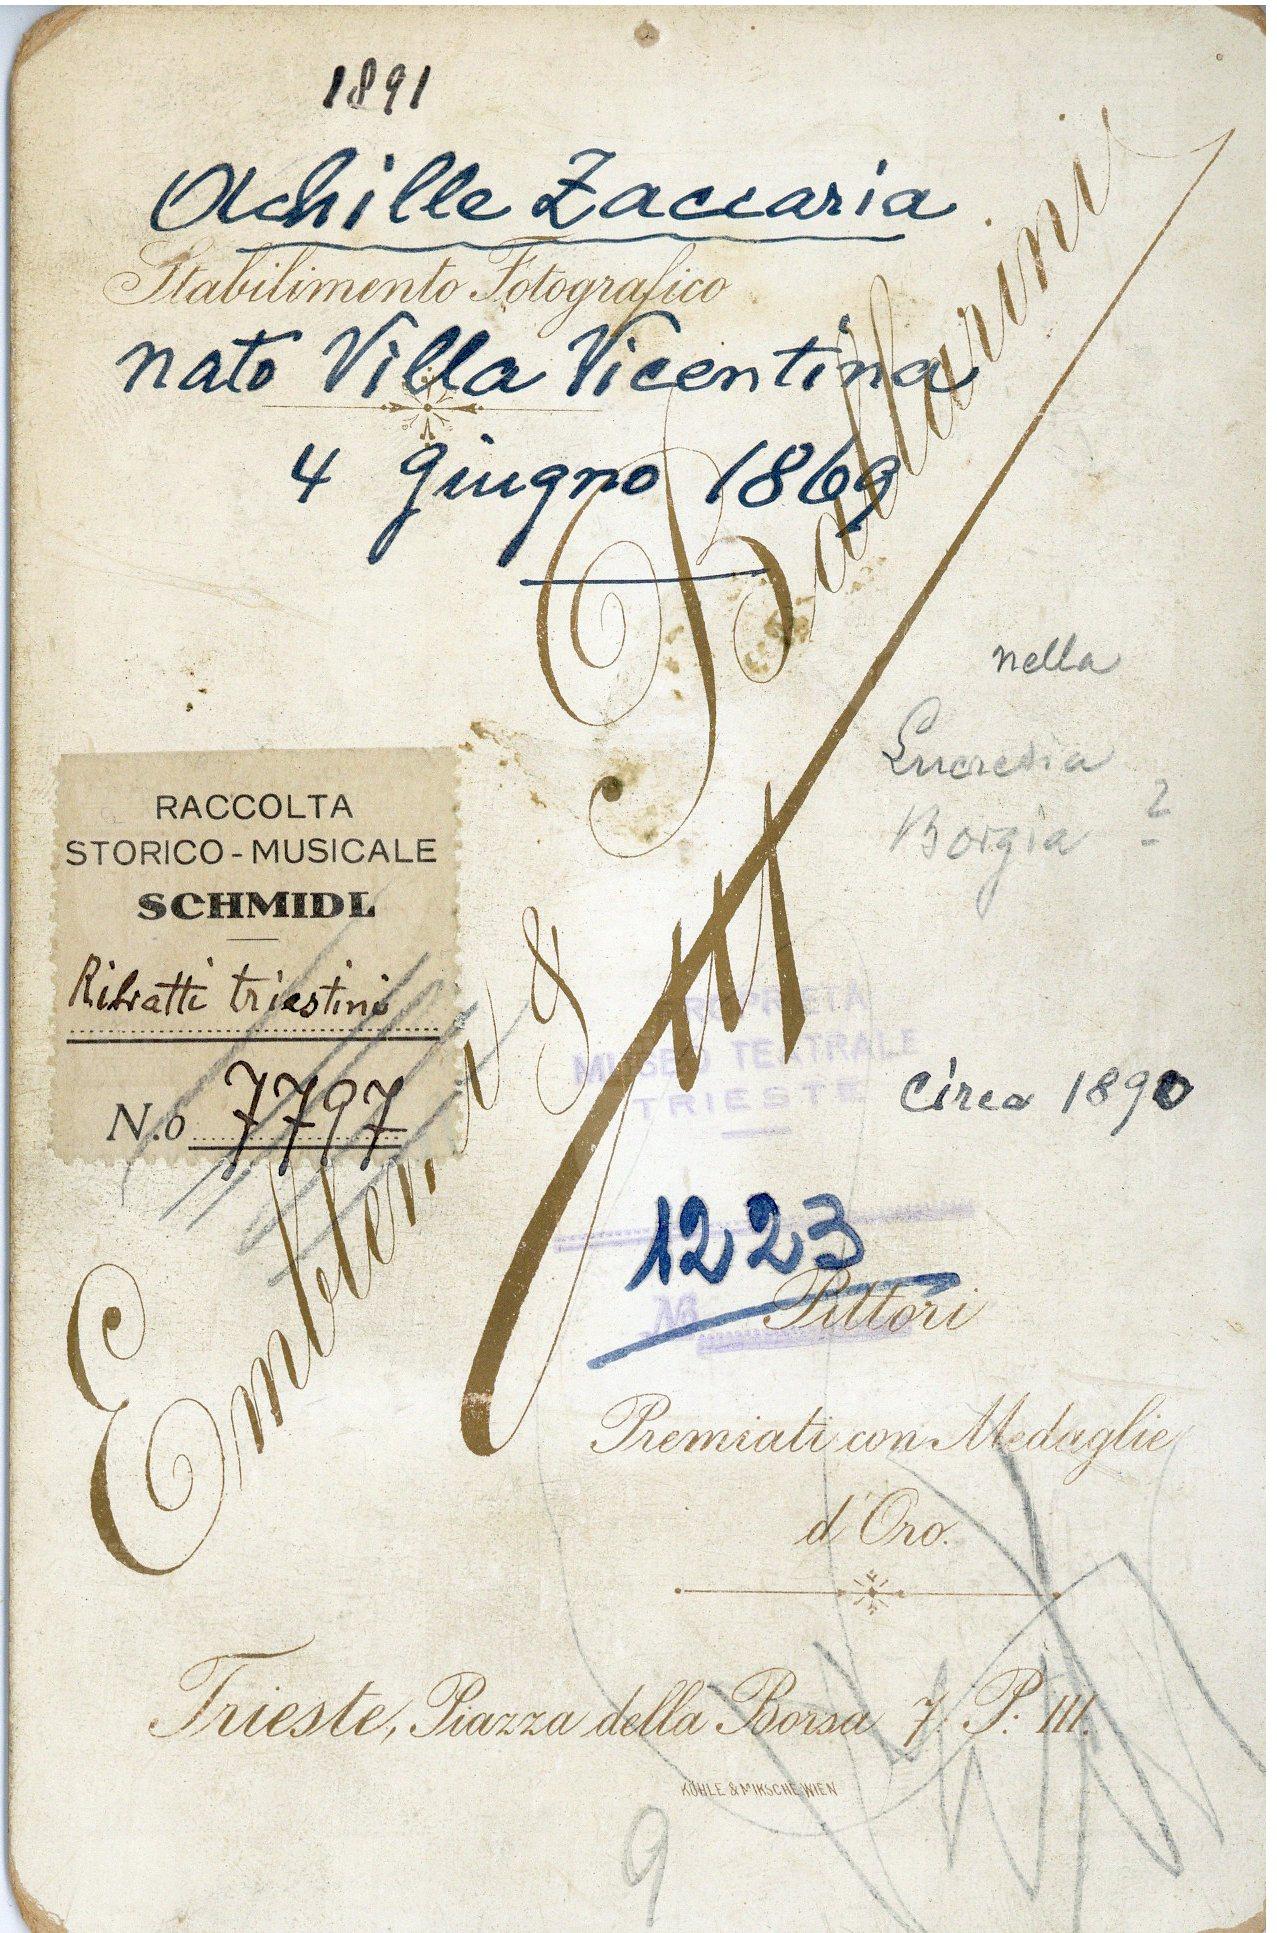 1891
Achille Zaccaria
Stabilimento Fotografico
nato Villa Vicentina
4 giugno 1869
nella
Lucrezia
Borgia ?
RACCOLTA
STORICO-MUSICALE
SCHMIDL
Ritratti triestini
N.o 7797
& Ballarini
PROPRIETÀ
MUSEO TEATRALE
TRIESTE
circa 1890
1223
No
Pittori
Premiati con Medaglie
d'Oro.
Trieste, Piazza della Borsa 7. P. III.
KÜHLE & MIKSCHE WIEN
9